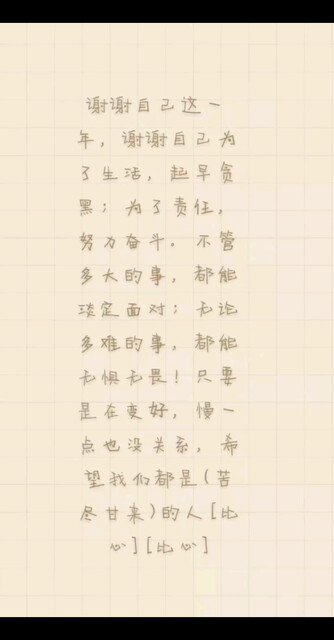 谢谢自己这一
年，谢谢自己为
了生活，起早贪
黑；为了责任，
努力奋斗。不管
多大的事，都能
淡定面对；无论
多难的事，都能
无惧无畏！只要
是在变好，慢一
点也没关系，希
望我们都是(苦
尽甘来)的人[比
心][比心]